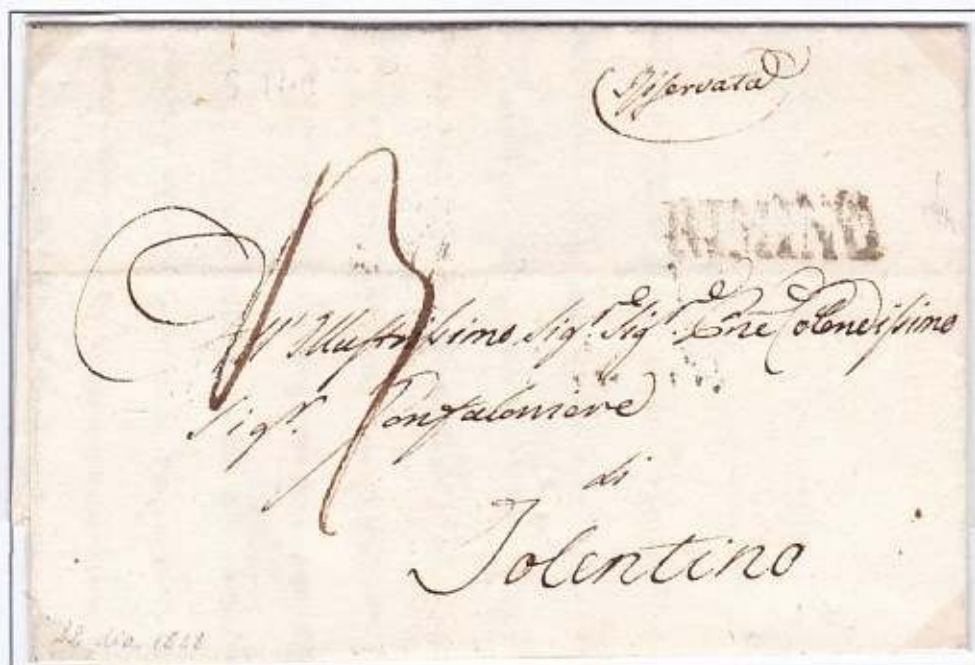 Riservata
All' Illustrissimo Sig.r Sig.r Pne Colendissimo
Sig.r Gonfaloniere
di
Tolentino
22 dic. 1828